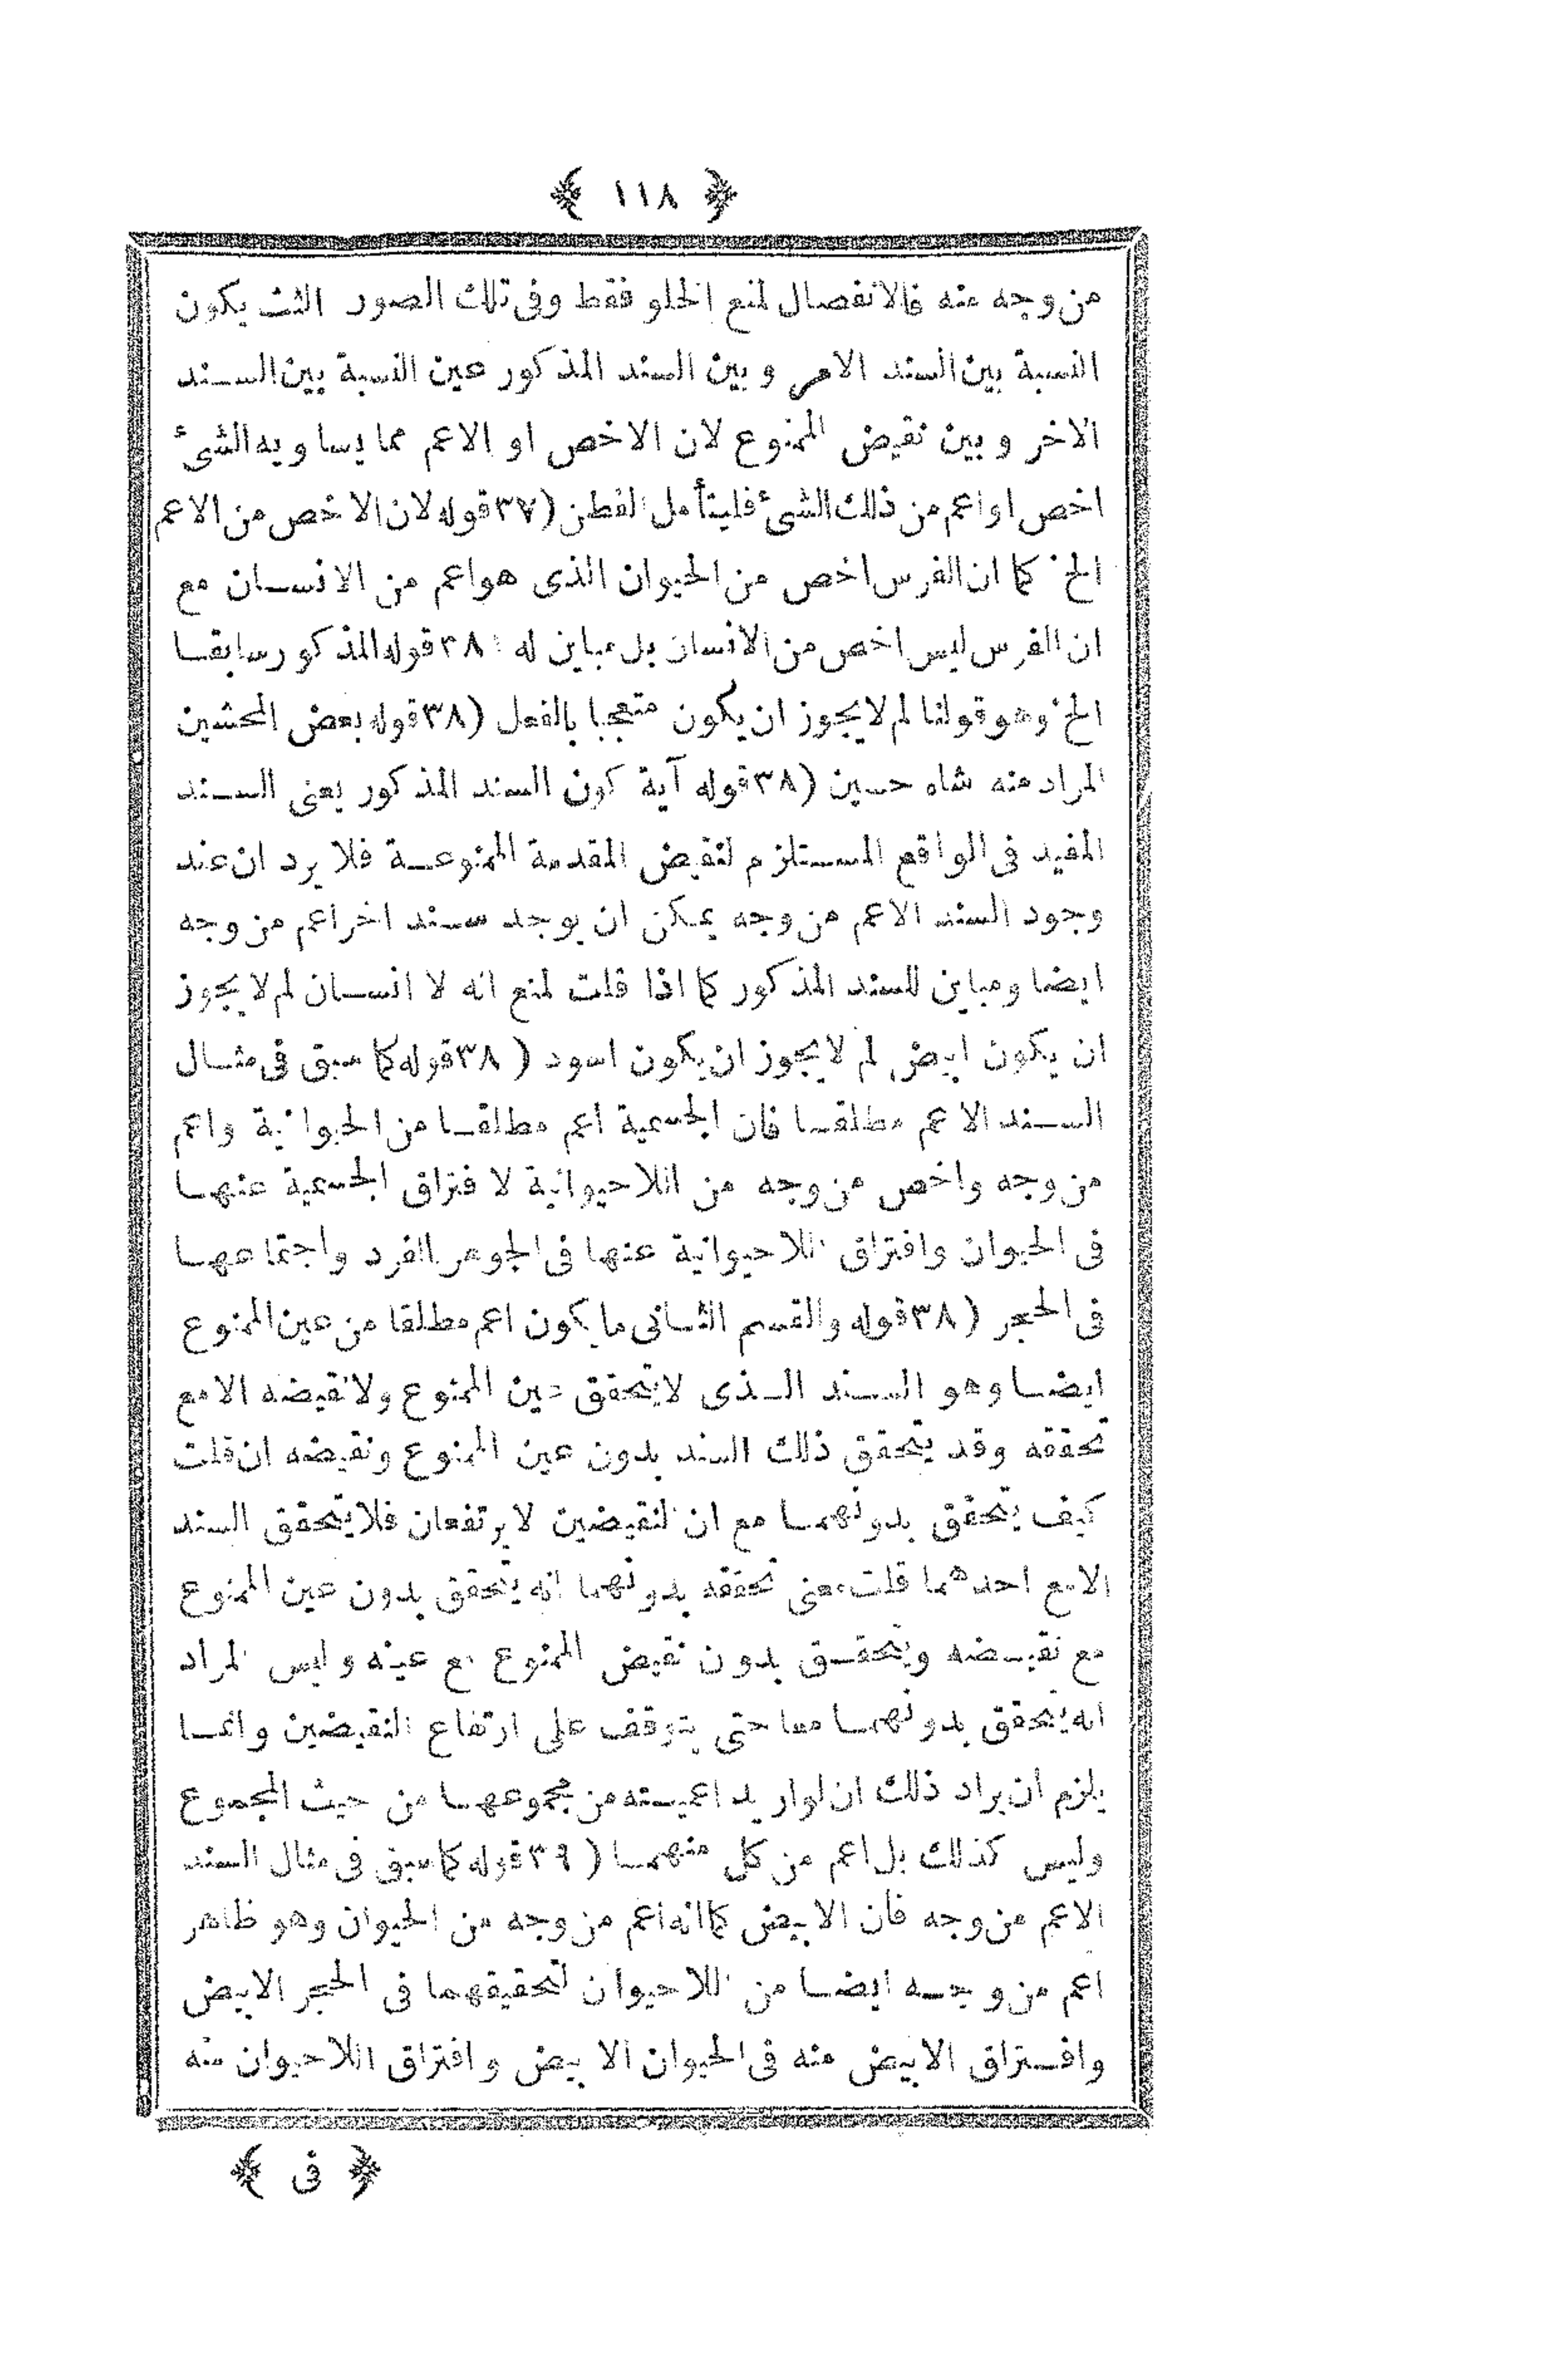 ﴿ ١١٨ ﴾
من وجه منه فالانفصال لمنع الخلو فقط وفى تلك الصور الثلث يكون
النسبة بين السند الاخر و بين السند المذكور عين النسبة بين السند
الاخر و بين نقيض الممنوع لان الاخص او الاعم مما يساويه الشئ
اخص او اعم من ذلك الشئ فليتأمل الفطن (٣٧ قوله لان الاخص من الاعم
الخ كما ان الفرس اخص من الحيوان الذى هو اعم من الانسان مع
ان الفرس ليس اخص من الانسان بل مباين له (٣٨ قوله المذكور سابقا
الخ وهو قولنا لم لا يجوز ان يكون متعجبا بالفعل (٣٨ قوله بعض المحشين
المراد منه شاه حسين (٣٨ قوله آية كون السند المذكور يعنى السند
المفيد فى الواقع المستلزم لنقيض المقدمة الممنوعة فلا يرد ان عند
وجود السند الاعم من وجه يمكن ان يوجد سند اخر اعم من وجه
ايضا ومباين للسند المذكور كما اذا قلت لمنع انه لا انسان لم لا يجوز
ان يكون ابيض لم لا يجوز ان يكون اسود (٣٨ قوله كما سبق فى مثال
السند الاعم مطلقا فان الجسمية اعم مطلقا من الحيوانية واعم
من وجه واخص من وجه من اللاحيوانية لافتراق الجسمية عنها
فى الحيوان وافتراق اللاحيوانية عنها فى الجوهر الفرد واجتماعها
فى الحجر (٣٨ قوله والقسم الثانى ما يكون اعم مطلقا من عين الممنوع
ايضا وهو السند الذى لا يتحقق عين الممنوع ولا نقيضه الا مع
تحققه وقد يتحقق ذلك السند بدون عين الممنوع ونقيضه ان قلت
كيف يتحقق بدونهما مع ان النقيضين لا يرتفعان فلا يتحقق السند
الا مع احدهما قلت معنى تحققه بدونهما انه يتحقق بدون عين الممنوع
مع نقيضه ويتحقق بدون نقيض الممنوع مع عينه وليس المراد
انه يتحقق بدونهما معا حتى يتوقف على ارتفاع النقيضين وانما
يلزم ان يراد ذلك ان لو اريد اعميته من مجموعهما من حيث المجموع
وليس كذلك بل اعم من كل منهما (٣٩ قوله كما سبق فى مثال السند
الاعم من وجه فان الابيض كما انه اعم من وجه من الحيوان وهو ظاهر
اعم من وجه ايضا من اللاحيوان لتحقيقهما فى الحجر الابيض
وافتراق الابيض منه فى الحيوان الابيض وافتراق اللاحيوان منه
﴿ فى ﴾